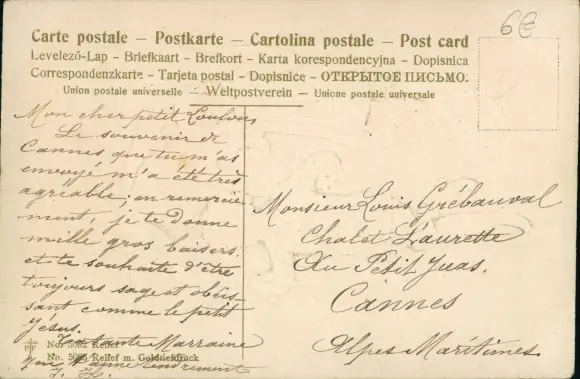 6€
Carte postale – Postkarte – Cartolina postale – Post card
Levelező-Lap – Briefkaart – Brefkort – Karta korespondencyjna – Dopisnica
Correspondenzkarte – Tarjeta postal – Dopisnice – ОТКРЫТОЕ ПИСЬМО.
Union postale universelle – Weltpostverein – Unione postale universale
Mon cher petit Loulou
Le souvenir de
Cannes que tu m'as
envoyé m'a été très
agréable; en remercie-
ment, je te donne
mille gros baisers
et te souhaite d'être
toujours sage et obéis-
sant comme le petit
Jésus.
Ta tante Marraine
qui t'aime tendrement
No. 5082 Relief
No. 5086 Relief m. Golddruck
Monsieur Louis Grébauval
Chalet Laurette
Au Petit Juas.
Cannes
Alpes Maritimes